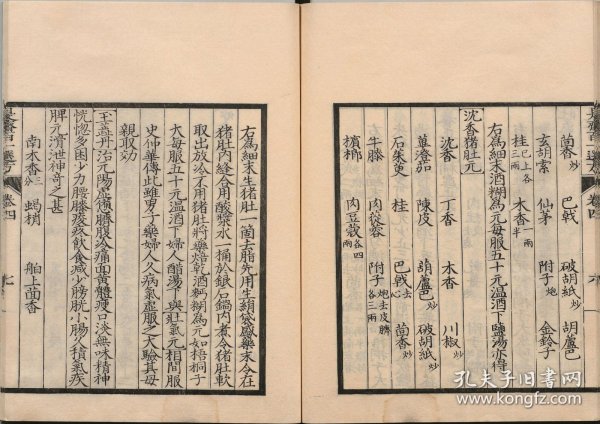 茴香炒 巴戟 破胡紙炒 胡蘆巴
玄胡索 仙茅 附子炮 金鈴子
桂已上各三兩 木香一兩半
右為細末酒糊為元每服五十元温酒下鹽湯亦得
沈香猪肚元
沈香 丁香 木香 川椒炒
蓽澄茄 陳皮 胡蘆巴炒 破胡紙炒
石茱萸 桂 巴戟去心 茴香炒
牛膝 肉蓯蓉 附子炮去皮臍各三兩
檳榔 肉豆蔻各四兩
右為細末生猪肚一箇去脂先用生絹袋盛藥末令在
猪肚内縫合用酸漿水一桶於銀石鍋内煮令猪肚軟
取出放冷不用猪肚將藥焙乾酒麫糊為元如梧桐子
大每服五十元温酒下婦人醋湯下與壯氣元相間服
史仲華傳此雖男子藥婦人久病氣虛服之大驗其母
親取効
玉蓋丹治元陽虛憊臍腹冷痛面黄體瘦口淡無味精神
恍惚多困少力腰膝痠疼飲食减少膀胱小腸久積氣疾
脾元滑泄神奇之甚
南木香三分 蝎梢 舶上茴香
是齋百一選方 卷四
孔夫子旧书网
www.kongfz.com